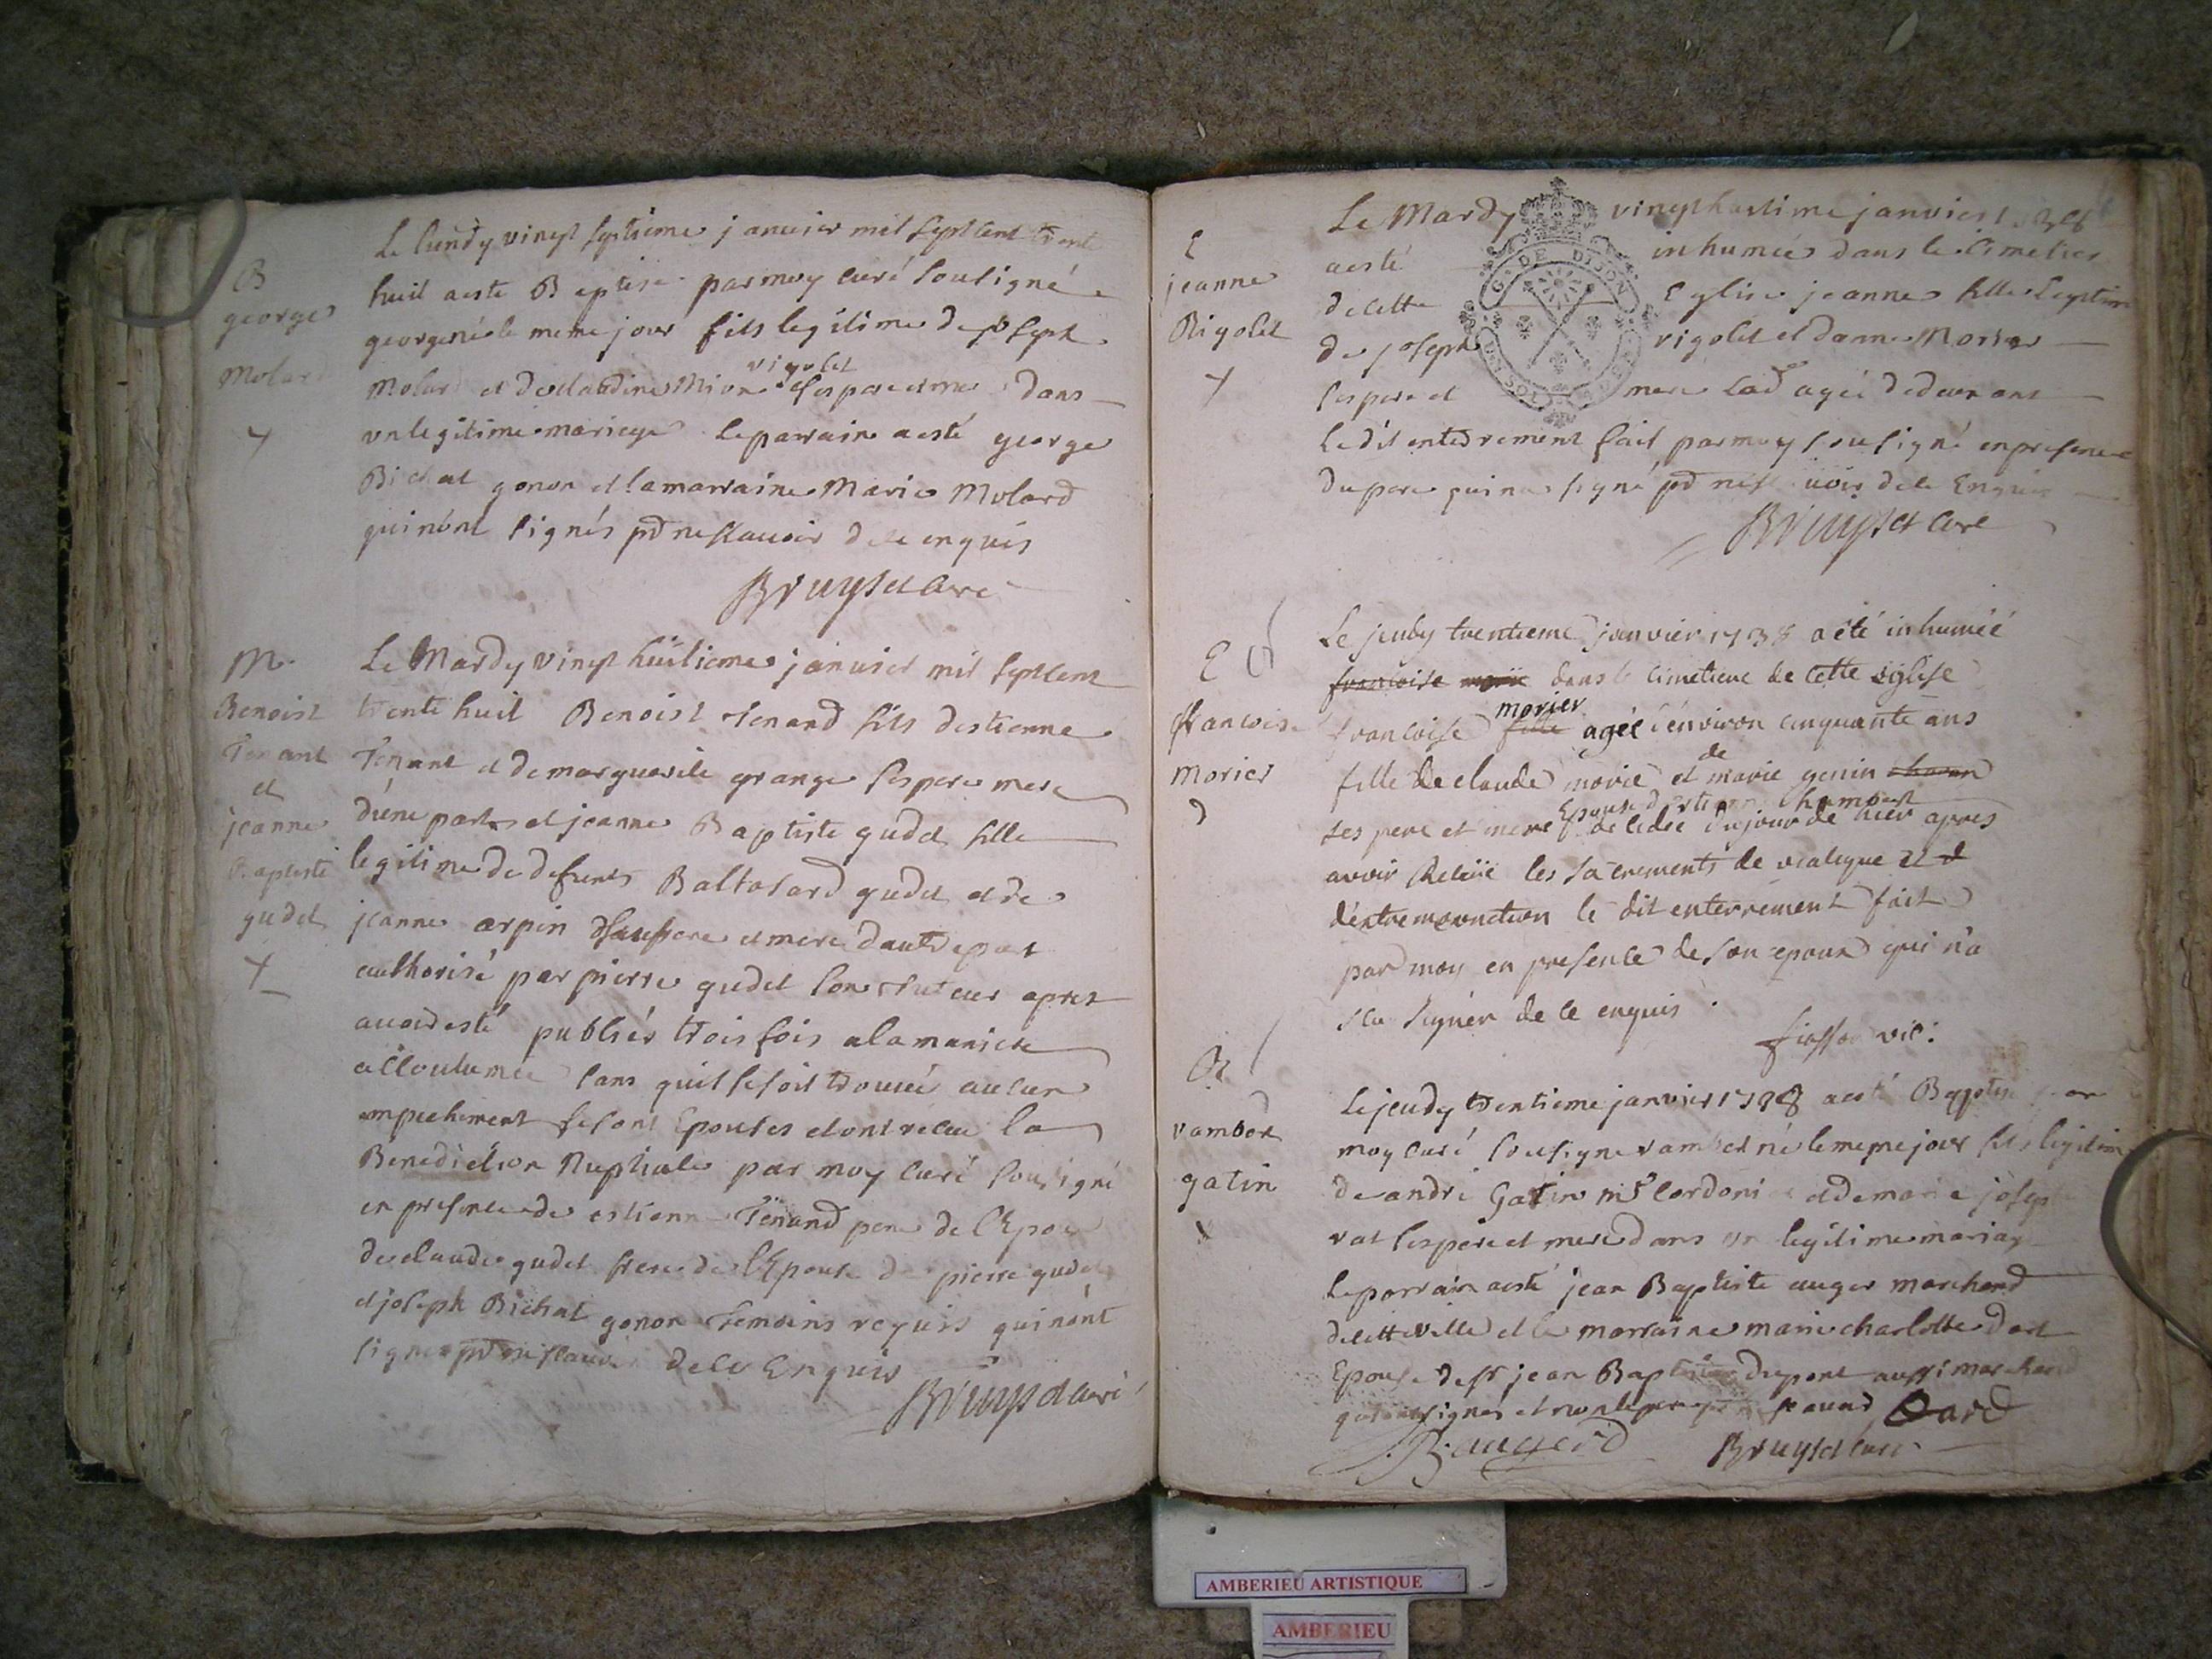 B
george
Molard
Le lundy vingt septieme janvier mil sept cent trente
huit a esté Baptisé par moy curé sousigné
george né le meme jour fils legitime de joseph
Molard et de claudine Mion vigolet ses pere et mere dans
un legitime mariage le parrain a esté george
Bichat gonon et la marraine Marie Molard
qui n'ont signés pd ne scavoir de ce enquis
Bruyset curé
M.
Benoist
Tenant
et
jeanne
Baptiste
gudet
Le Mardy vingt huitieme janvier mil sept cent
trente huit Benoist Tenand fils d'estienne
Tenant et de marguerite grange ses pere mere
d'une part et jeanne Baptiste gudet fille
legitime de defunts Baltasard gudet et de
jeanne arpin ses pere et mere d'autre part
authorisé par pierre gudet son tuteur apres
avoir esté publiés trois fois a la maniere
accoutumée sans qu'il se soit trouvé aucun
empechement se sont Epousés et ont recue la
Benediction Nuptiale par moy curé sousigné
en presence de estienne Tenand pere de l'Epoux
de claude gudet frere de l'Epouse de pierre gudet
et joseph Bichat gonon temoins requis qui n'ont
signés pd ne scavoir de ce Enquis
Bruyset curé
E
jeanne
Rigolet
Le Mardy vingt huitieme janvier 1738
a esté inhumée dans le cimetier
de cette Eglise jeanne fille legitime
de joseph rigolet et d'anne Morier
ses pere et mere lad agée de deux ans
le dit enterrement fait par moy sousigné en presence
du pere qui n'a signé pd ne scavoir de ce Enquis
Bruyset curé
G. DE DIJON
E
francoise
morier
Le jeudy trentieme janvier 1738 a été inhumée
francoise marie dans le cimetiere de cette église
francoise fille morier agée d'environ cinquante ans
fille de claude morie et de marie genin
ses pere et mere Epouse d'estienne humbert decedée du jour de hier apres
avoir Recue les sacrements de viatique et d
d'extremonction le dit enterrement fait
par moy en presence de son epoux qui n'a
scu signer de ce enquis
fiasson vic:
B
rambert
gatin
Le jeudy trentieme janvier 1738 a esté Baptisé par
moy curé sousigné rambert né le meme jour fils legitim
de andré Gatin mr cordonier et de marie josep
vat ses pere et mere dans un legitime mariage
le parrain a esté jean Baptiste auger marchand
de cette ville et la marraine marie charlotte dard
Epouse de sr jean Baptiste dupont aussi marchand
qui ont signés et non le pere scavoir Dard
J. B. augerd Bruyset curé
AMBERIEU ARTISTIQUE
AMBERIEU